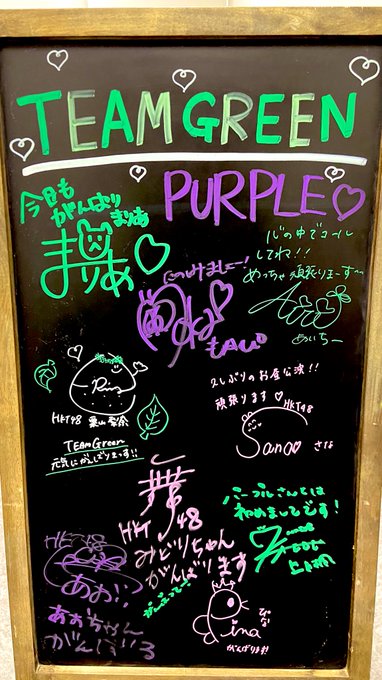 TEAM GREEN
PURPLE
今日も
がんばり
まりあ
まりあ
心の中でコール
してね!!
めっちゃ頑張りまーす
めいちー
HKT48 栗山梨奈
TEAM Green
元気にがんばりまっす!!
久しぶりのお昼公演!!
頑張ります
HKT48
Sana
さな
HKT48
みどりちゃん
がんばります
パープルさんとは
初めましてです!
HKT48
あお!!
あおちゃん
がんばる
ぴな
ina
がんばります